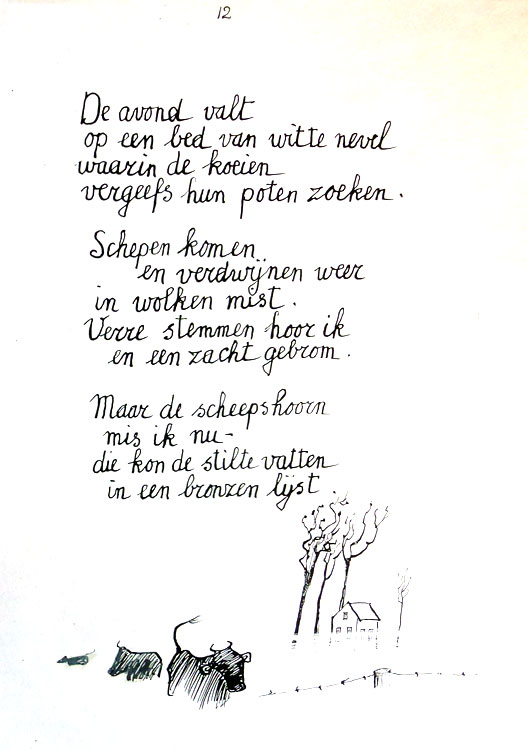 12
De avond valt
op een bed van witte nevel
waarin de koeien
vergeefs hun poten zoeken.
Schepen komen
en verdwijnen weer
in wolken mist.
Verre stemmen hoor ik
en een zacht gebrom.
Maar de scheepshoorn
mis ik nu-
die kon de stilte vatten
in een bronzen lijst.